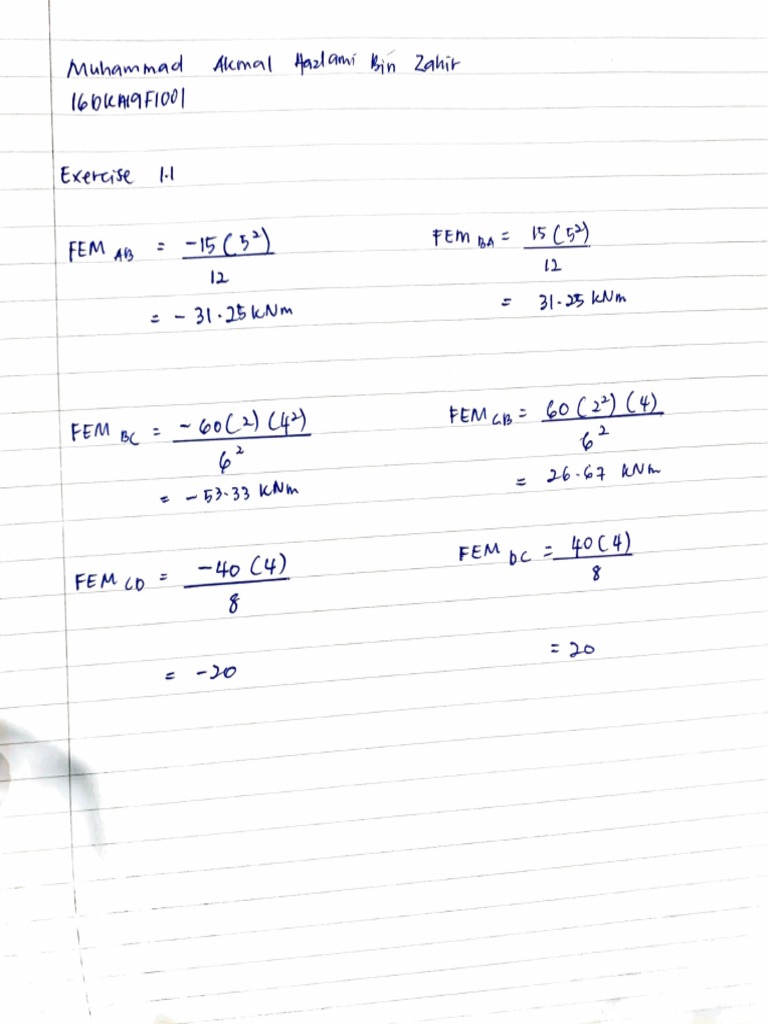 Muhammad Akmal Hazlami Bin Zahir
16DKA19F1001
Exercise 1.1
FEM AB = -15(5²) / 12
= -31.25 kNm
FEM BA = 15(5²) / 12
= 31.25 kNm
FEM BC = -60(2)(4²) / 6²
= -53.33 kNm
FEM CB = 60(2²)(4) / 6²
= 26.67 kNm
FEM CD = -40(4) / 8
= -20
FEM DC = 40(4) / 8
= 20